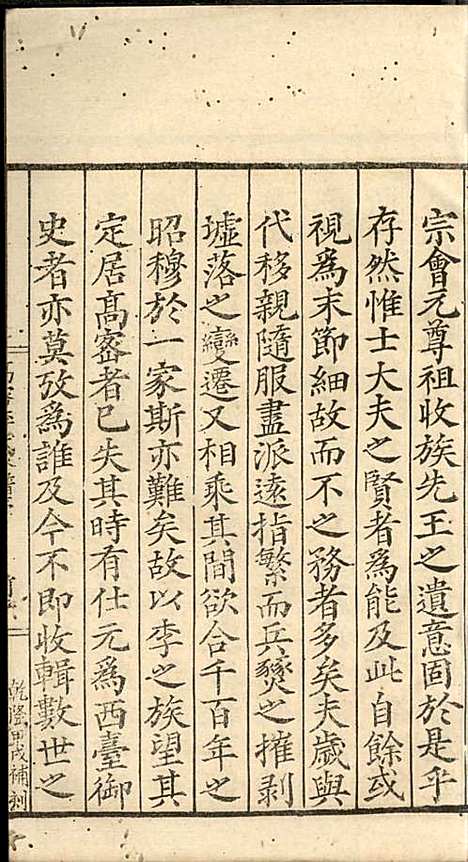 宗會元尊祖收族先王之遺意固於是乎
存然惟士大夫之賢者爲能及此自餘或
視爲末節細故而不之務者多矣夫歲與
代移親隨服盡派遠指繁而兵燹之摧剥
墟落之變遷又相乘其間欲合千百年之
昭穆於一家斯亦難矣故以李之族望其
定居髙密者已失其時有仕元爲西臺御
史者亦莫攷爲誰及今不即收輯數世之
乾隆甲戌補刻